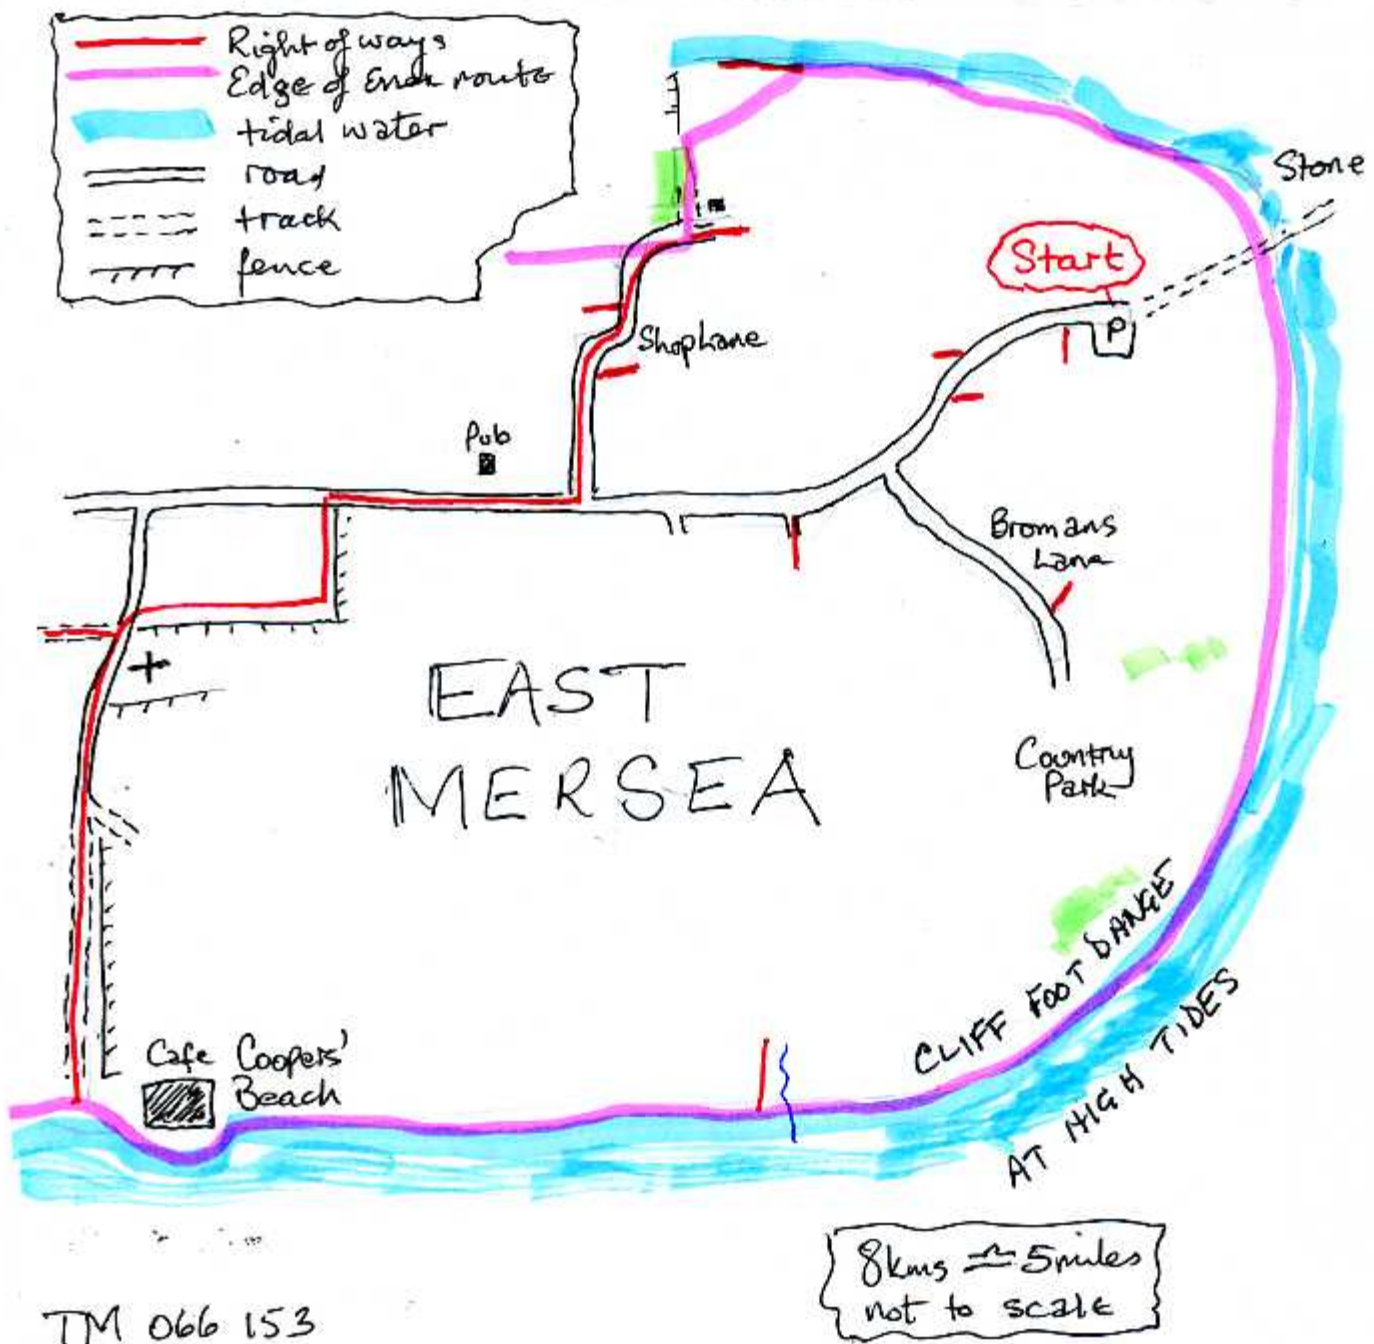 Right of ways
Edge of Essex route
tidal water
road
track
fence
Stone
Start
P
Shop Lane
Pub
Bromans
Lane
EAST
MERSEA
Country
Park
CLIFF FOOT DANGE
AT HIGH TIDES
Cafe Coopers'
Beach
8kms ≏ 5miles
not to scale
TM 066 153